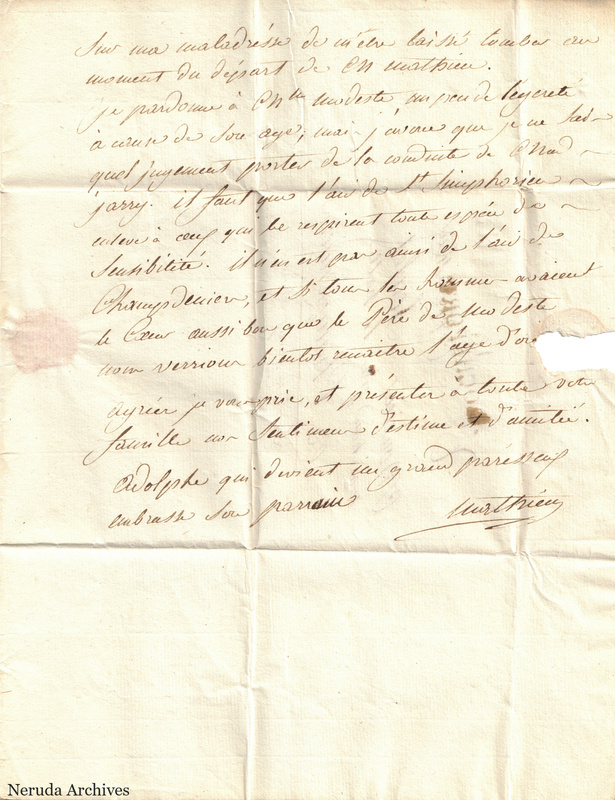 sur ma maladresse de m'être laissé tomber au
moment du départ de Mathieu.
je pardonne à modeste un peu de legereté
à cause de son age; mai j'avoue que je ne sai
quel jugement porter de la conduite de
jarry. il faut que l'air de St. Simphorien
enleve à ceux qui le respirent toute espèce de
Sensibilité. il n'en est pas ainsi de l'air de
Champdenier, et si tous les hommes avaient
le Cœur aussi bon que le Père de modeste
nous verrions bientot renaitre l'age d'or
agréer je vous prie, et présenter à toute votre
famille nos Sentimens d'estime et d'amitié.
Adolphe qui devient un grand paresseux
embrasse son parrain
Mathieu
Neruda Archives